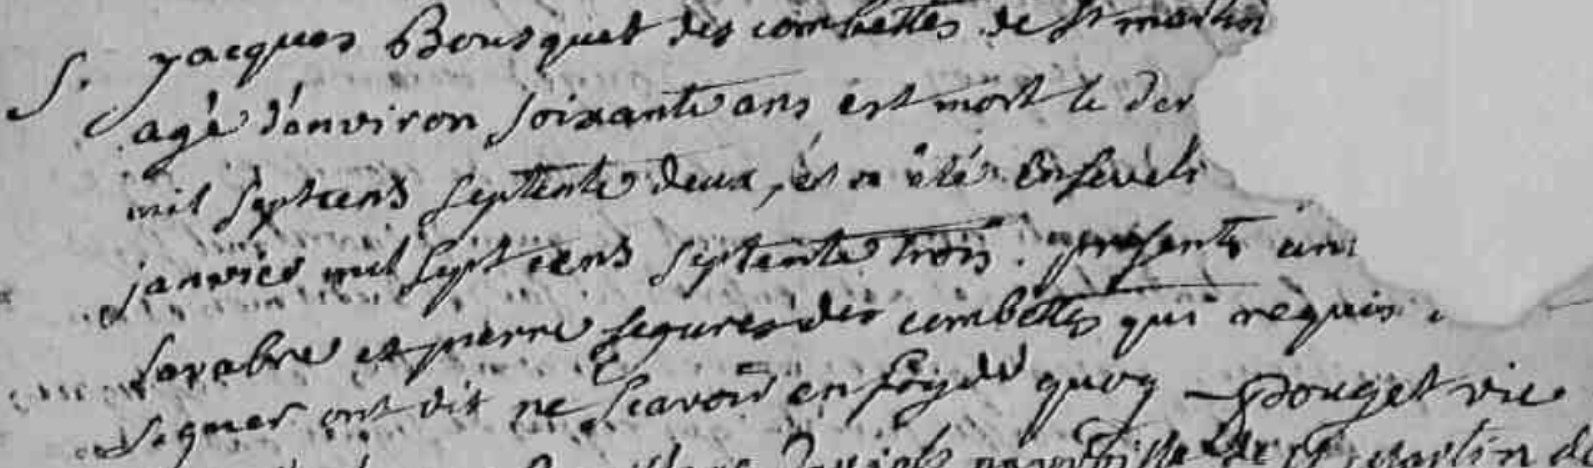 S. Jacques Bousquet des combettes de St martin
agé d'environ soixante ans est mort le der
mil sept cens septente deux, et a été Enseveli
janvier mil sept cens septente trois. presents
savabre et pierre segures des combettes qui requis
signer ont dit ne scavoir en foy de quoy Pouget vic
martin de